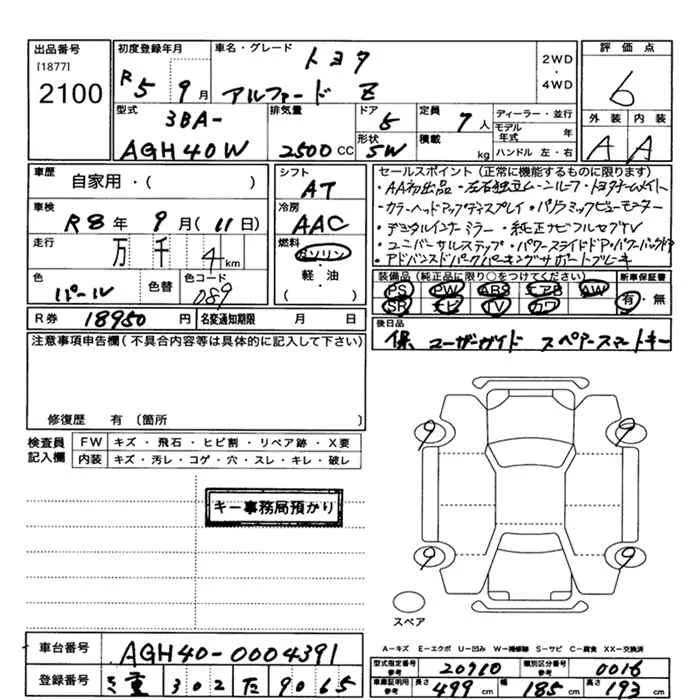 出品番号
[1877]
2100
初度登録年月
R5 9月
車名・グレード
トヨタ
アルファード Z
2WD
・
4WD
評価点
6
外装 内装
A A
型式
3BA-
AGH40W
排気量
2500 CC
ドア
5
形状
5W
定員
7人
積載
kg
ディーラー・並行
モデル年式 年
ハンドル 左・右
車歴
自家用・( )
車検
R8年 9月(11日)
走行
万 千 4 km
色
パール
色替
色コード
089
シフト
AT
冷房
AAC
燃料
ガソリン
・
軽・油
( )
セールスポイント(正常に機能するものに限ります)
・AA初出品・左右独立ムーンルーフ・トヨタチームメイト
・カラーヘッドアップディスプレイ・パノラミックビューモニター
・デジタルインナーミラー・純正ナビフルセグTV
・ユニバーサルステップ・パワースライドドア・パワーバックドア
・アドバンスドパーク パーキングサポートブレーキ
装備品(純正品に限り○をつけてください)
PS PW ABS エアB AW
SR ナビ TV カワ
新車保証書
有・無
R券 18950円
名変通知期限 月 日
後日品
保 ユーザーガイド スペアースマートキー
注意事項申告欄(不具合内容等は具体的に記入して下さい)
修復歴 有 〔箇所
検査員記入欄
FW キズ・飛石・ヒビ割・リペア跡・X要
内装 キズ・汚レ・コゲ・穴・スレ・キレ・破レ
キー事務局預かり
9 9
9 9
スペア
A−キズ E−エクボ U−凹み W−補修跡 S−サビ C−腐食 XX−交換済
車台番号
AGH40-0004391
登録番号
三重 302 た 9065
型式指定番号
参考
20710
類別区分番号
参考
0016
車庫証明用
参考
長さ 499 cm
幅 185 cm
高さ 193 cm